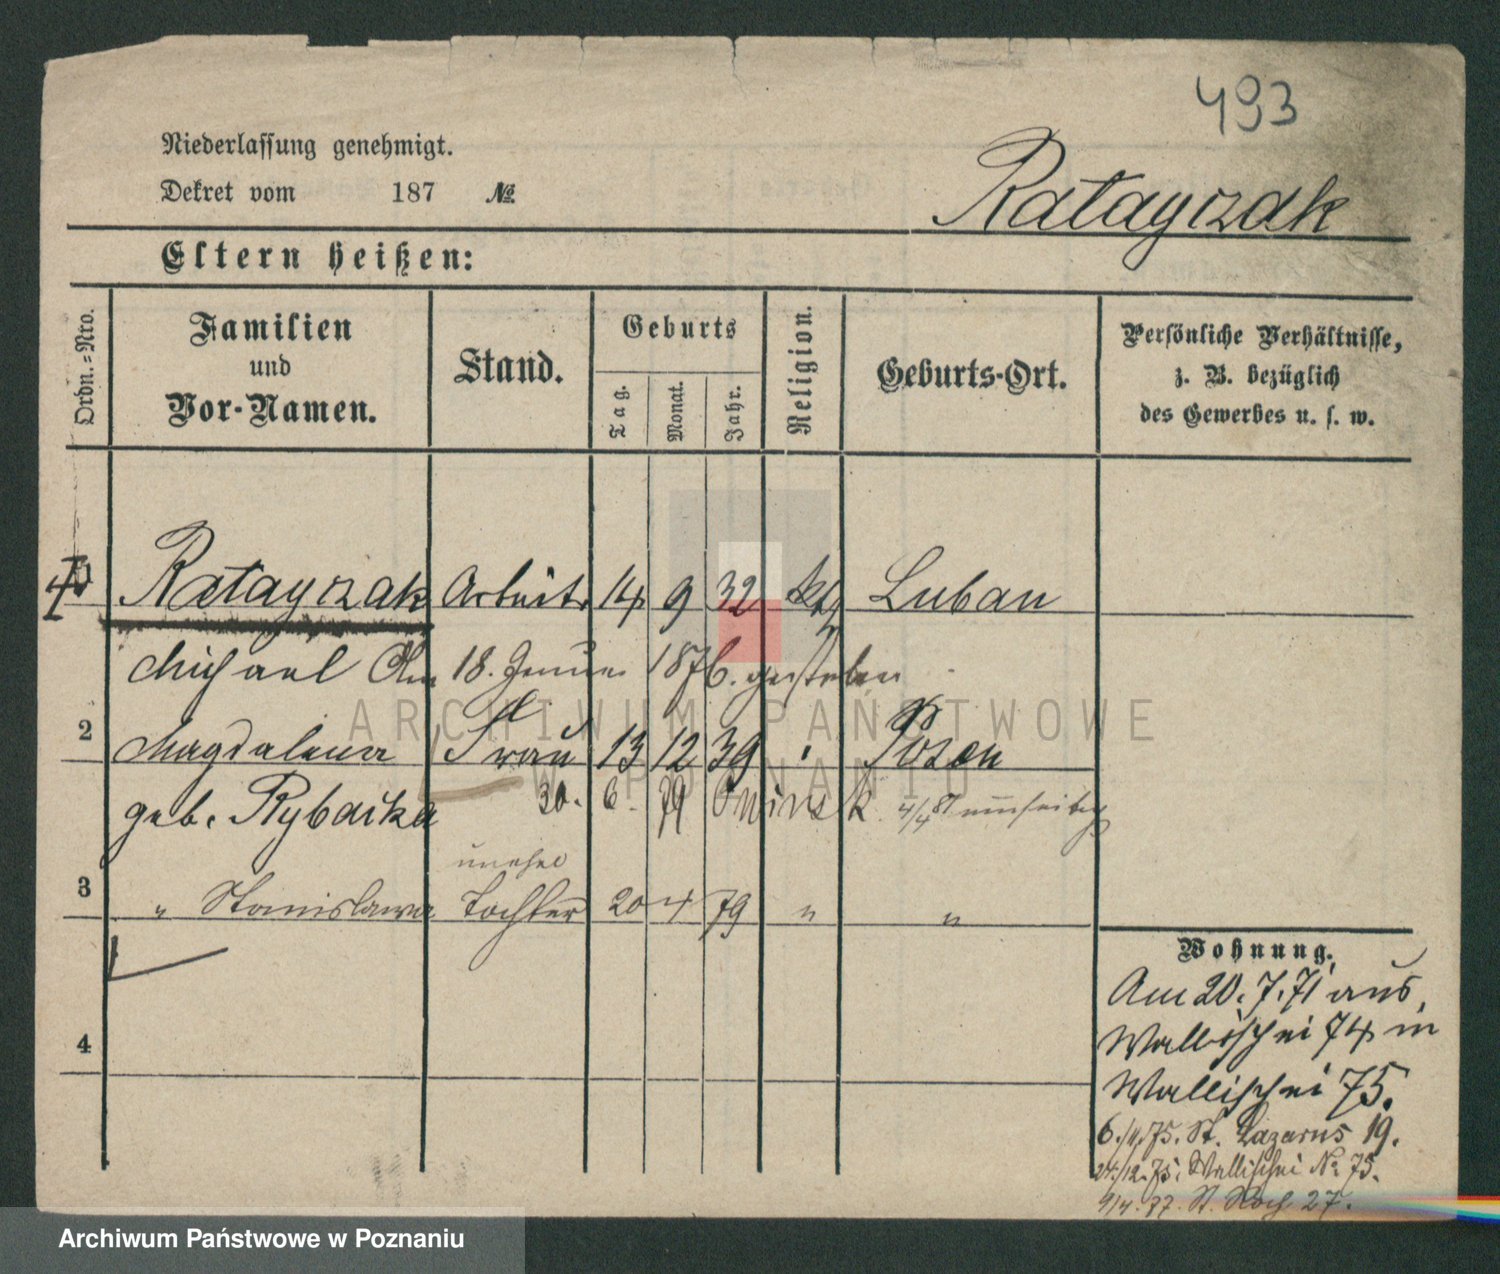 493
Niederlassung genehmigt.
Dekret vom 187 №
Ratayczak
Eltern heißen:
Ordn.-Nro.
Familien
und
Vor-Namen.
Stand.
Geburts
Tag.
Monat.
Jahr.
Religion.
Geburts-Ort.
Persönliche Verhältnisse,
z. B. bezüglich
des Gewerbes u. s. w.
Ratayczak Arbeiter 14 9 32 kth Luban
Michael Am 18. Januar 1876. gestorben
2 Magdalena Frau 13 12 39 " Posen
geb. Rybacka 30. 6. 79 Owinsk 4/4 81
unehel
3 " Stanislawa Tochter 20 4 79 " "
4
Wohnung.
Am 20. 7. 71 aus
Wallischei 74 in
Wallischei 75.
6./11. 75. St. Lazarus 19.
24./12. 75. Wallischei № 75.
9/4. 77. St. Roch 27.
ARCHIWUM PAŃSTWOWE
W POZNANIU
Archiwum Państwowe w Poznaniu